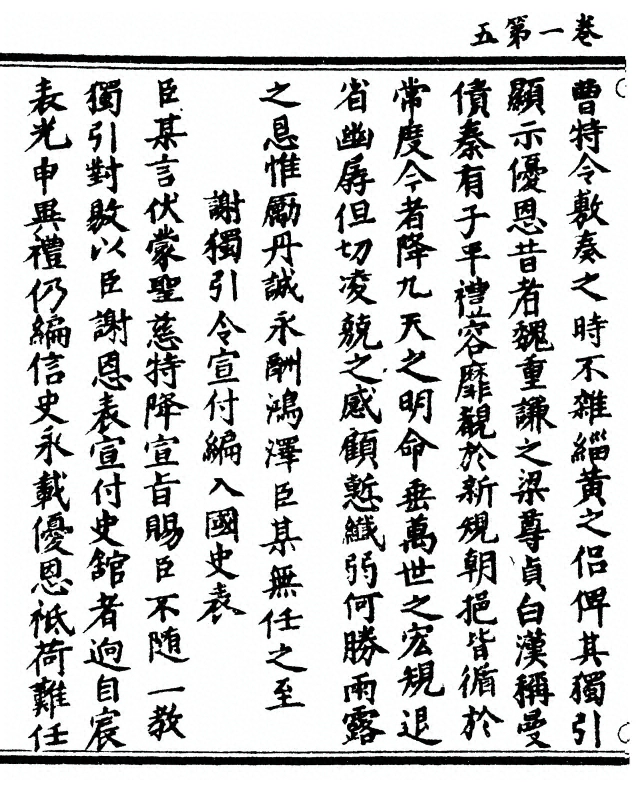 卷一第五
曹特令敷奏之時不雜緇黃之侣俾其獨引
顯示優恩昔者魏重謙之梁尊貞白漢稱曼
債秦有子平禮容靡覿於新規朝挹皆循於
常度今者降九天之明命垂萬世之宏規退
省幽孱但切凌兢之感顧慙纖弱何勝雨露
之恩惟勵丹誠永酬鴻澤臣某無任之至
謝獨引令宣付編入國史表
臣某言伏蒙聖慈特降宣旨賜臣不随一教
獨引對敭以臣謝恩表宣付史舘者逈自宸
表光申異禮仍編信史永載優恩祗荷難任